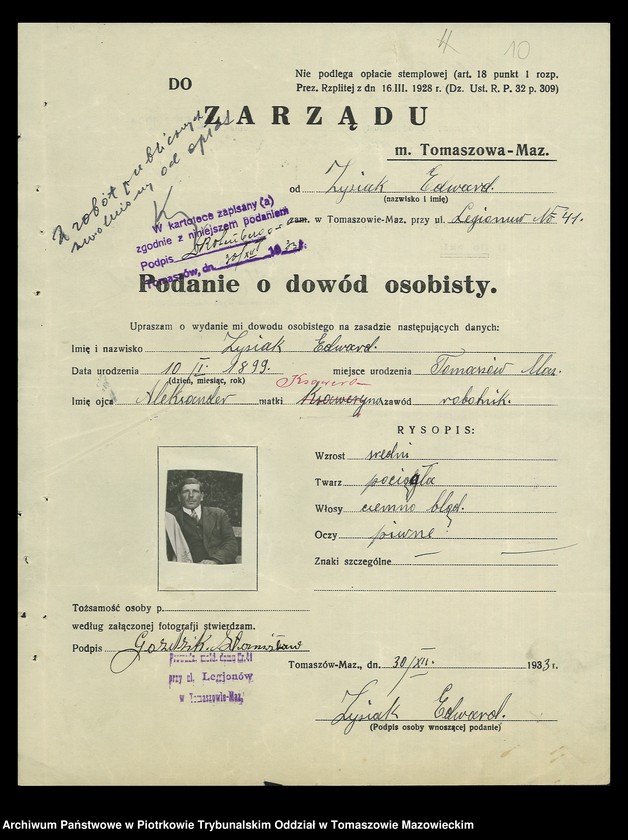 10
DO
Nie podlega opłacie stemplowej (art. 18 punkt 1 rozp.
Prez. Rzplitej z dn 16.III. 1928 r. (Dz. Ust. R. P. 32 p. 309)
ZARZĄDU
m. Tomaszowa-Maz.
Z robót publicznych
zwolniony od opłat
od Zysiak Edward.
(nazwisko i imię)
zam. w Tomaszowie-Maz. przy ul. Legionów No 41.
W kartotece zapisany (a)
zgodnie z niniejszem podaniem
Podpis
Tomaszów, dn. 30/XII 1933 r.
Podanie o dowód osobisty.
Upraszam o wydanie mi dowodu osobistego na zasadzie następujących danych:
Imię i nazwisko Zysiak Edward.
Data urodzenia 10 II. 1899. miejsce urodzenia Tomaszów Maz.
(dzień, miesiąc, rok)
Ksawera
Imię ojca Aleksander matki Ksawery zawód robotnik.
RYSOPIS:
Wzrost średni
Twarz pociągła
Włosy ciemno bląd.
Oczy piwne
Znaki szczególne —
Tożsamość osoby p.
według załączonej fotografji stwierdzam.
Podpis Goździk Stanisław
meld. domu Nr. 41
przy ul. Legjonów
w Tomaszowie-Maz.
Tomaszów-Maz., dn. 30/XII. 1933 r.
Zysiak Edward.
(Podpis osoby wnoszącej podanie)
Archiwum Państwowe w Piotrkowie Trybunalskim Oddział w Tomaszowie Mazowieckim